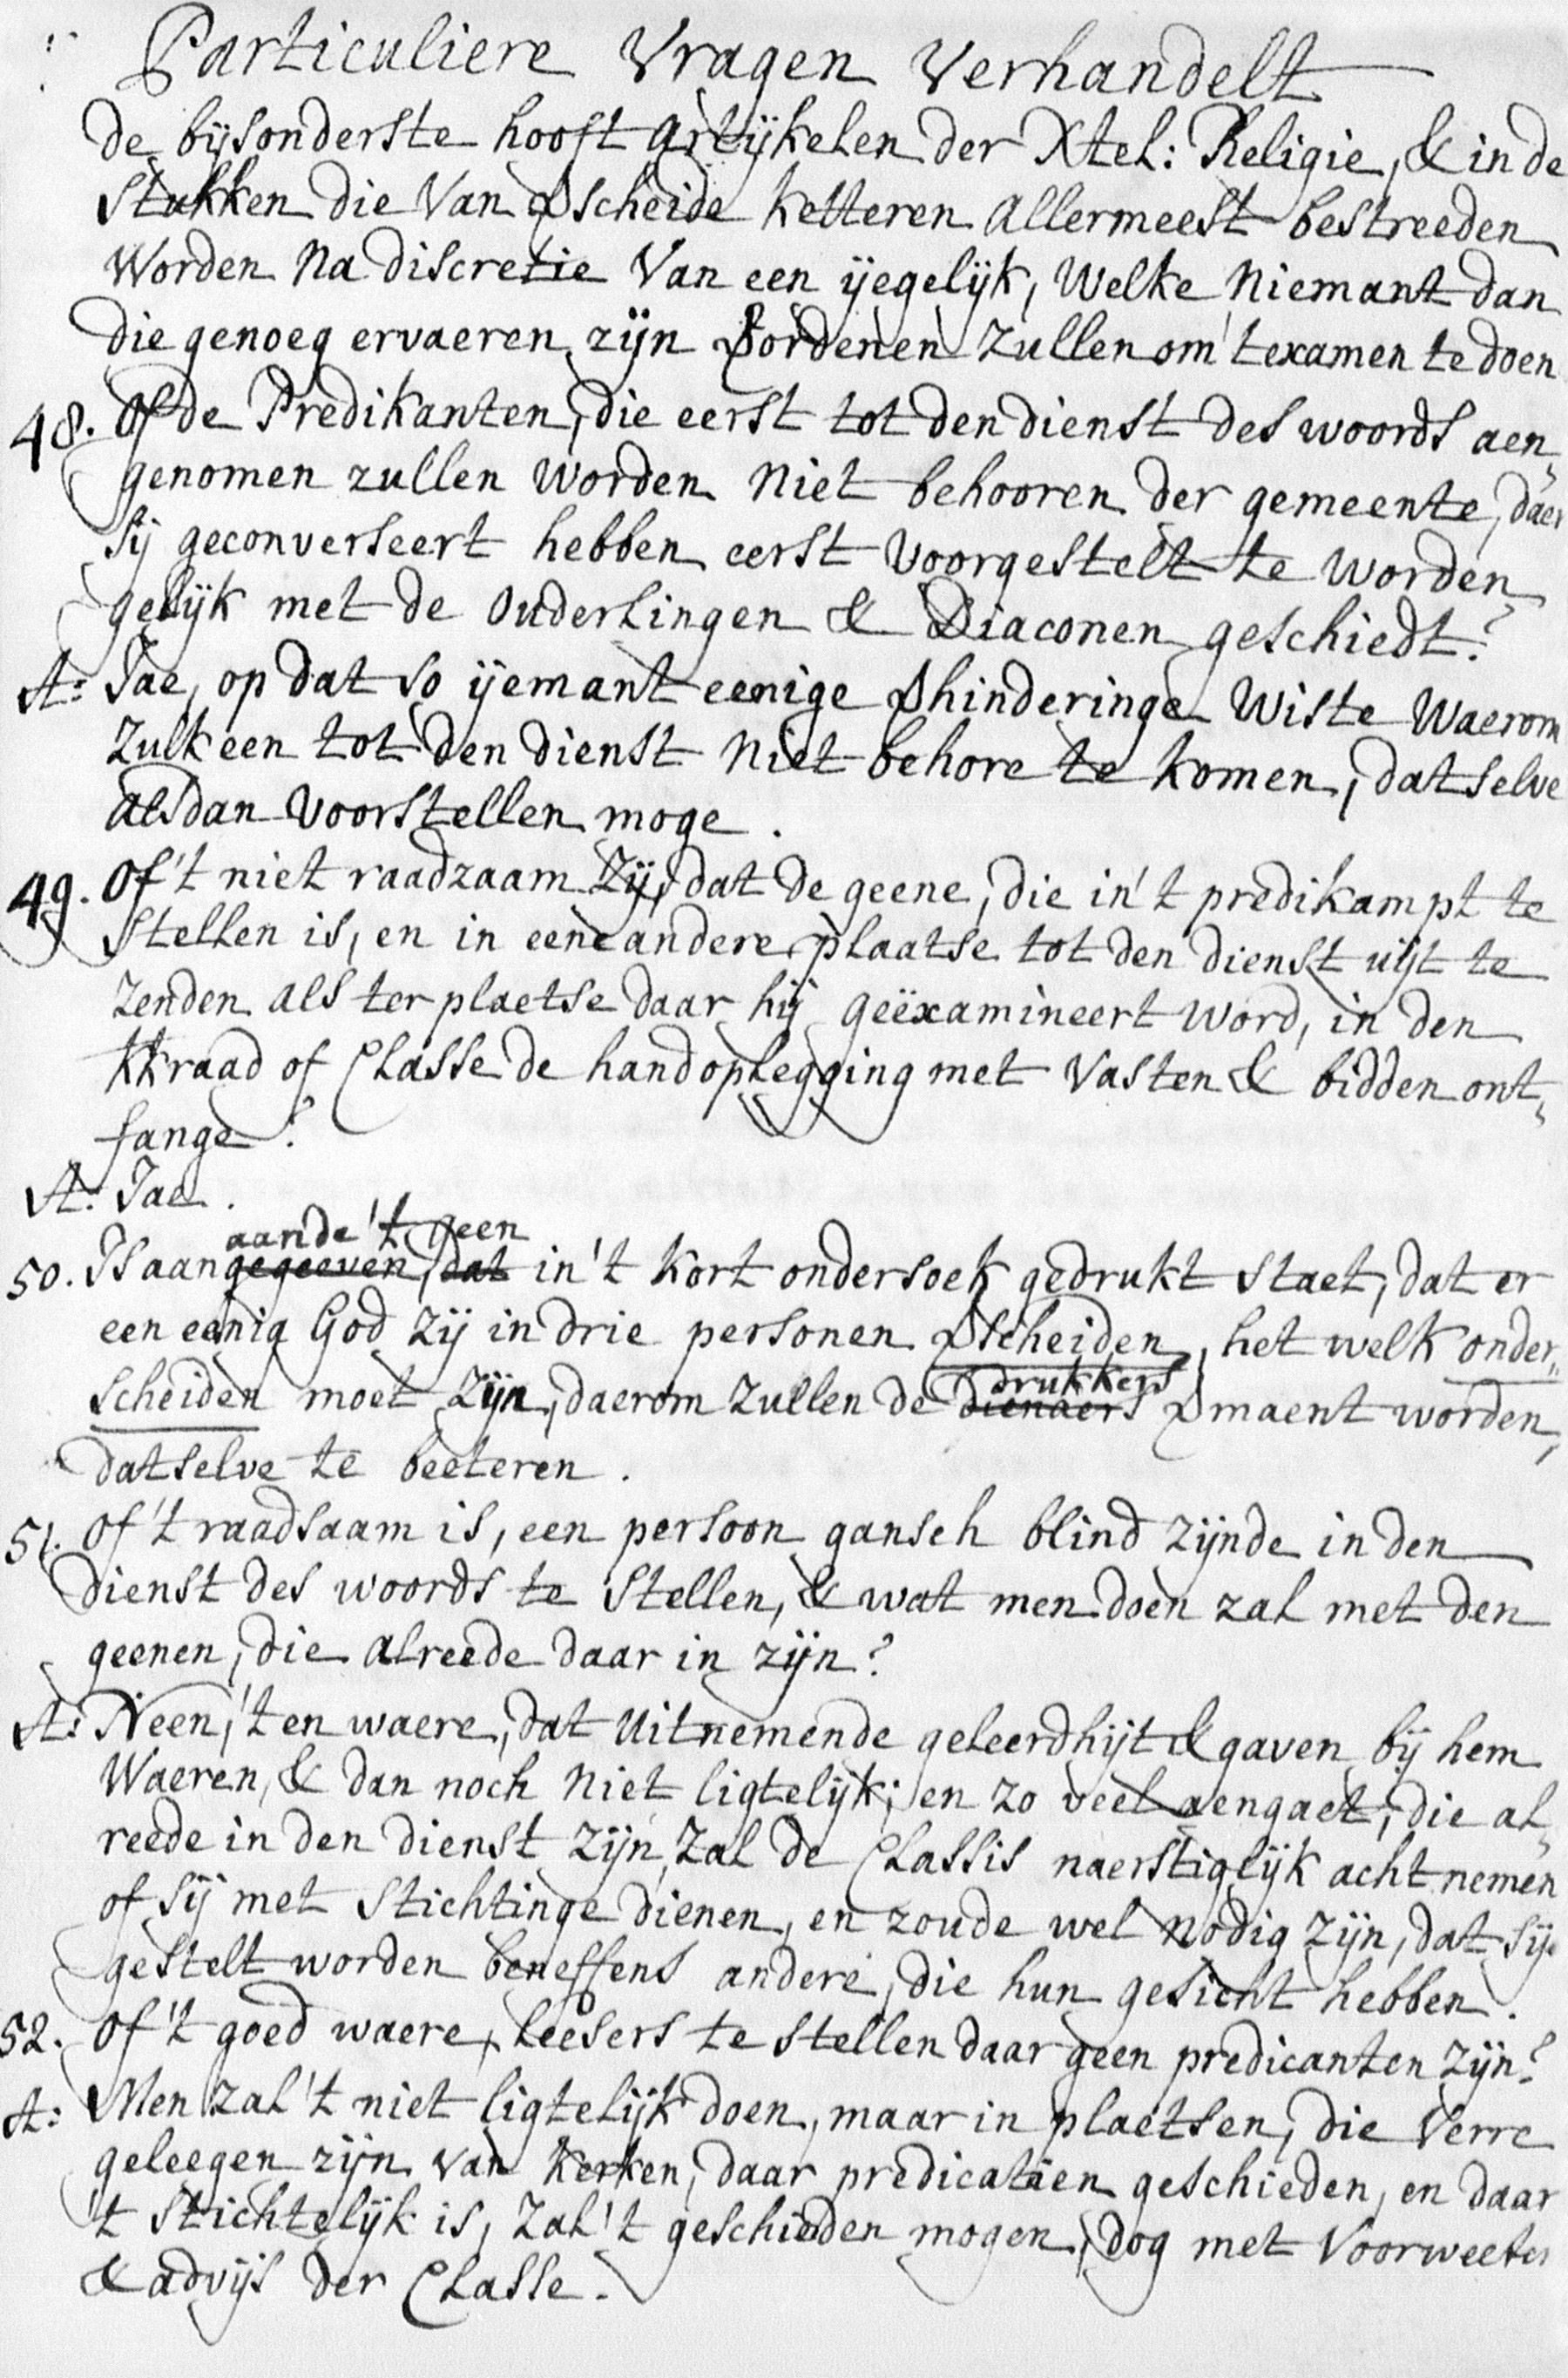 Particuliere Vragen Verhandelt
de bijsonderste hooft Artijkelen der Xtel: Religie, & in de
Stukken die Van Vscheide Ketteren Allermeest bestreeden
Worden Na discretie Van een ijegelijk, Welke Niemant dan
die genoeg ervaeren zijn Vordenen Zullen om 't examen te doen
48. Of de Predikanten, die eerst tot den dienst des woords aen„
genomen zullen Worden Niet behooren der gemeente, daer
Sij geconverseert hebben eerst Voorgestelt te Worden
gelijk met de Ouderlingen & Diaconen geschiedt?
A: Jae, op dat so ijemant eenige Vhinderinge Wiste Waerom
Zulk een tot den dienst Niet behore te komen, dat selve
Als dan Voorstellen moge.
49. Of 't niet raadzaam Zij, dat de geene, die in 't predikampt te
Stellen is, en in eene andere plaatse tot den dienst uijt te
Zenden als ter plaetse daar hij geëxamineert Word, in den
KKraad of Classe de handoplegging met Vasten & bidden ont„
fange?
A: Jae.
aande 't geen
50. Is aangegeeven, dat in 't Kort ondersoek gedrukt Staet, dat er
een eenig God Zij in drie personen Vscheiden, het welk onder„
drukkers
scheiden moet Zijn, daerom Zullen de dienaers Vmaent worden,
dat selve te beeteren.
51. Of 't raadsaam is, een persoon gansch blind zijnde in den
dienst des woords te Stellen, & wat men doen zal met den
geenen, die Alreede daar in zijn?
A: Neen, 't en waere, dat Uitnemende geleerdhijt & gaven bij hem
Waeren, & dan noch Niet ligtelijk; en zo veel aengaet, die al„
reede in den dienst Zijn, Zal de Classis naerstiglijk acht nemen
of Sij met Stichtinge dienen, en zoude wel Nodig Zijn, dat Sije
gestelt worden beneffens andere, die hun gesicht hebben.
52. Of 't goed waere, Leesers te stellen daar geen predicanten Zijn?
A: Men Zal 't niet ligtelijk doen, maar in plaetsen, die Verre
geleegen zijn Van Kerken, daar predicatien geschieden, en daar
't Stichtelijk is, Zal 't geschieden mogen, dog met Voorweeten
& advijs der Classe.